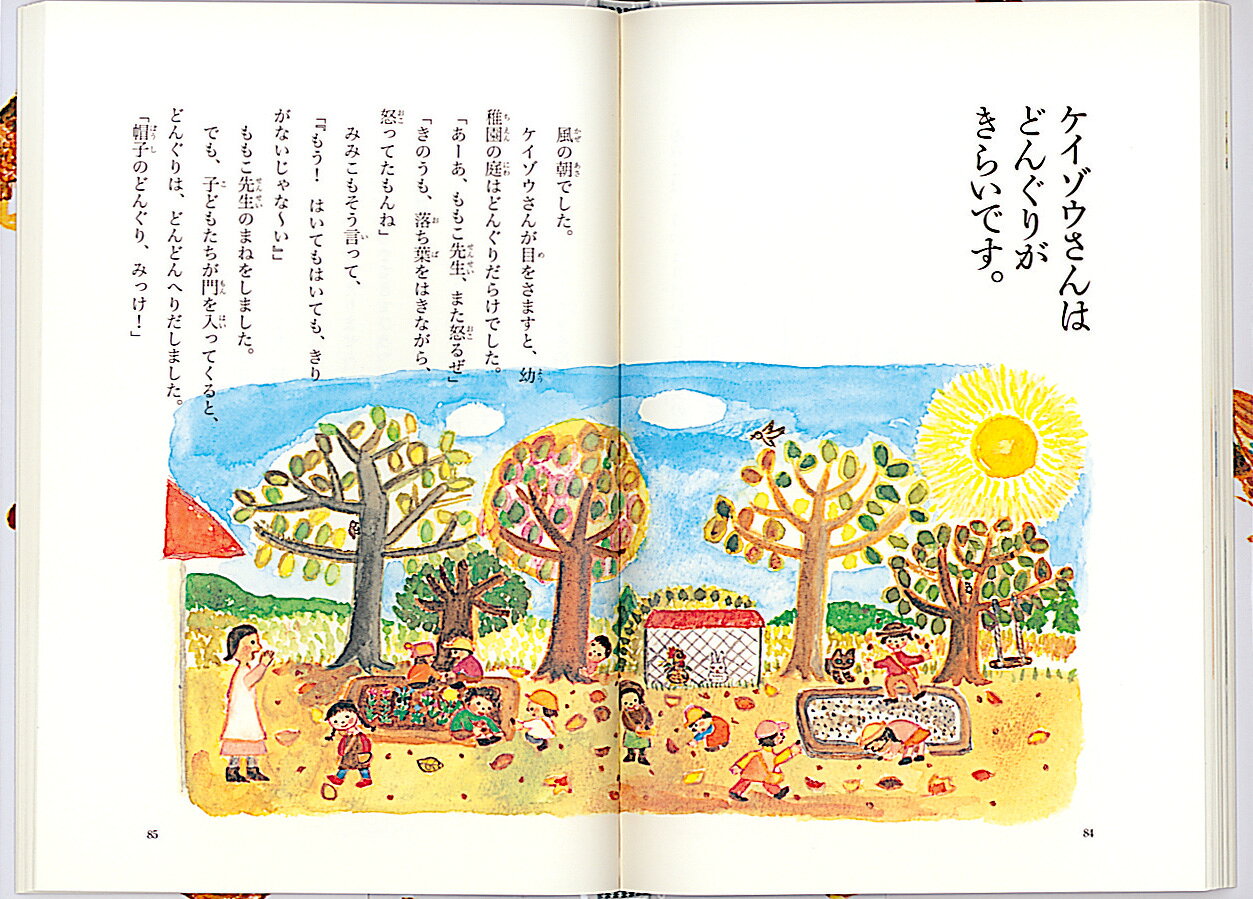 ケイゾウさんは
どんぐりが
きらいです。
風の朝でした。
ケイゾウさんが目をさますと、幼
稚園の庭はどんぐりだらけでした。
「あーあ、ももこ先生、また怒るぜ」
「きのうも、落ち葉をはきながら、
怒ってたもんね」
みみこもそう言って、
「『もう！　はいてもはいても、きり
がないじゃな〜い』」
ももこ先生のまねをしました。
でも、子どもたちが門を入ってくると、
どんぐりは、どんどんへりだしました。
「帽子のどんぐり、みっけ！」
85
84